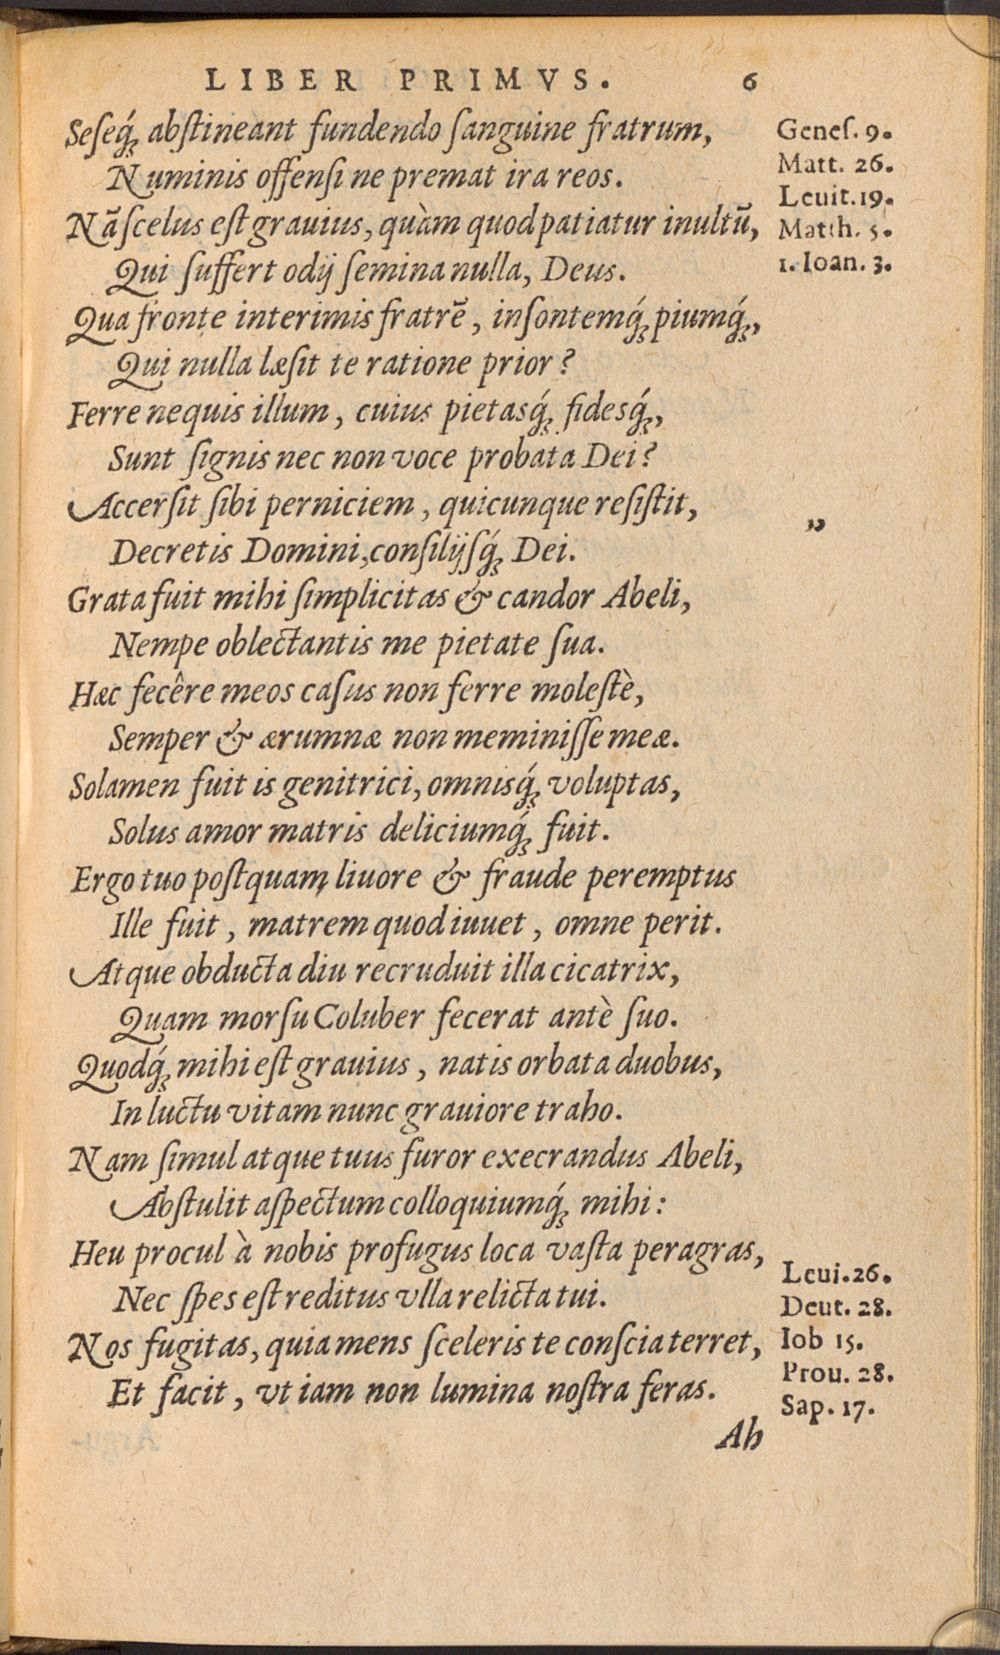 LIBER PRIMVS. 6
Seseq́ꝫ abſtineant fundendo ſanguine fratrum,
Numinis offenſi ne premat ira reos.
Nã ſcelus eſt grauius, quàm quod patiatur inultũ,
Qui ſuffert odij ſemina nulla, Deus.
Qua fronte interimis fratrẽ, inſontemq́ꝫ piumq́ꝫ,
Qui nulla læſit te ratione prior?
Ferre nequis illum, cuius pietasq́ꝫ fidesq́ꝫ,
Sunt ſignis nec non voce probata Dei?
Accerſit ſibi perniciem, quicunque reſiſtit,
Decretis Domini, conſilijſq́ꝫ Dei.
Grata fuit mihi ſimplicitas & candor Abeli,
Nempe oblectantis me pietate ſua.
Hæc fecêre meos caſus non ferre moleſtè,
Semper & ærumnæ non meminiſſe meæ.
Solamen fuit is genitrici, omnisq́ꝫ voluptas,
Solus amor matris deliciumq́ꝫ fuit.
Ergo tuo poſtquam liuore & fraude peremptus
Ille fuit, matrem quod iuuet, omne perit.
Atque obducta diu recruduit illa cicatrix,
Quam morſu Coluber fecerat antè ſuo.
Quodq́ꝫ mihi eſt grauius, natis orbata duobus,
In luctu vitam nunc grauiore traho.
Nam ſimul atque tuus furor execrandus Abeli,
Abſtulit aſpectum colloquiumq́ꝫ mihi:
Heu procul à nobis profugus loca vaſta peragras,
Nec ſpes eſt reditus vlla relicta tui.
Nos fugitas, quia mens ſceleris te conſcia terret,
Et facit, vt iam non lumina noſtra feras.
Ab
Geneſ. 9.
Matt. 26.
Leuit. 19.
Matth. 5.
1. Ioan. 3.
„
Leui. 26.
Deut. 28.
Iob 15.
Prou. 28.
Sap. 17.